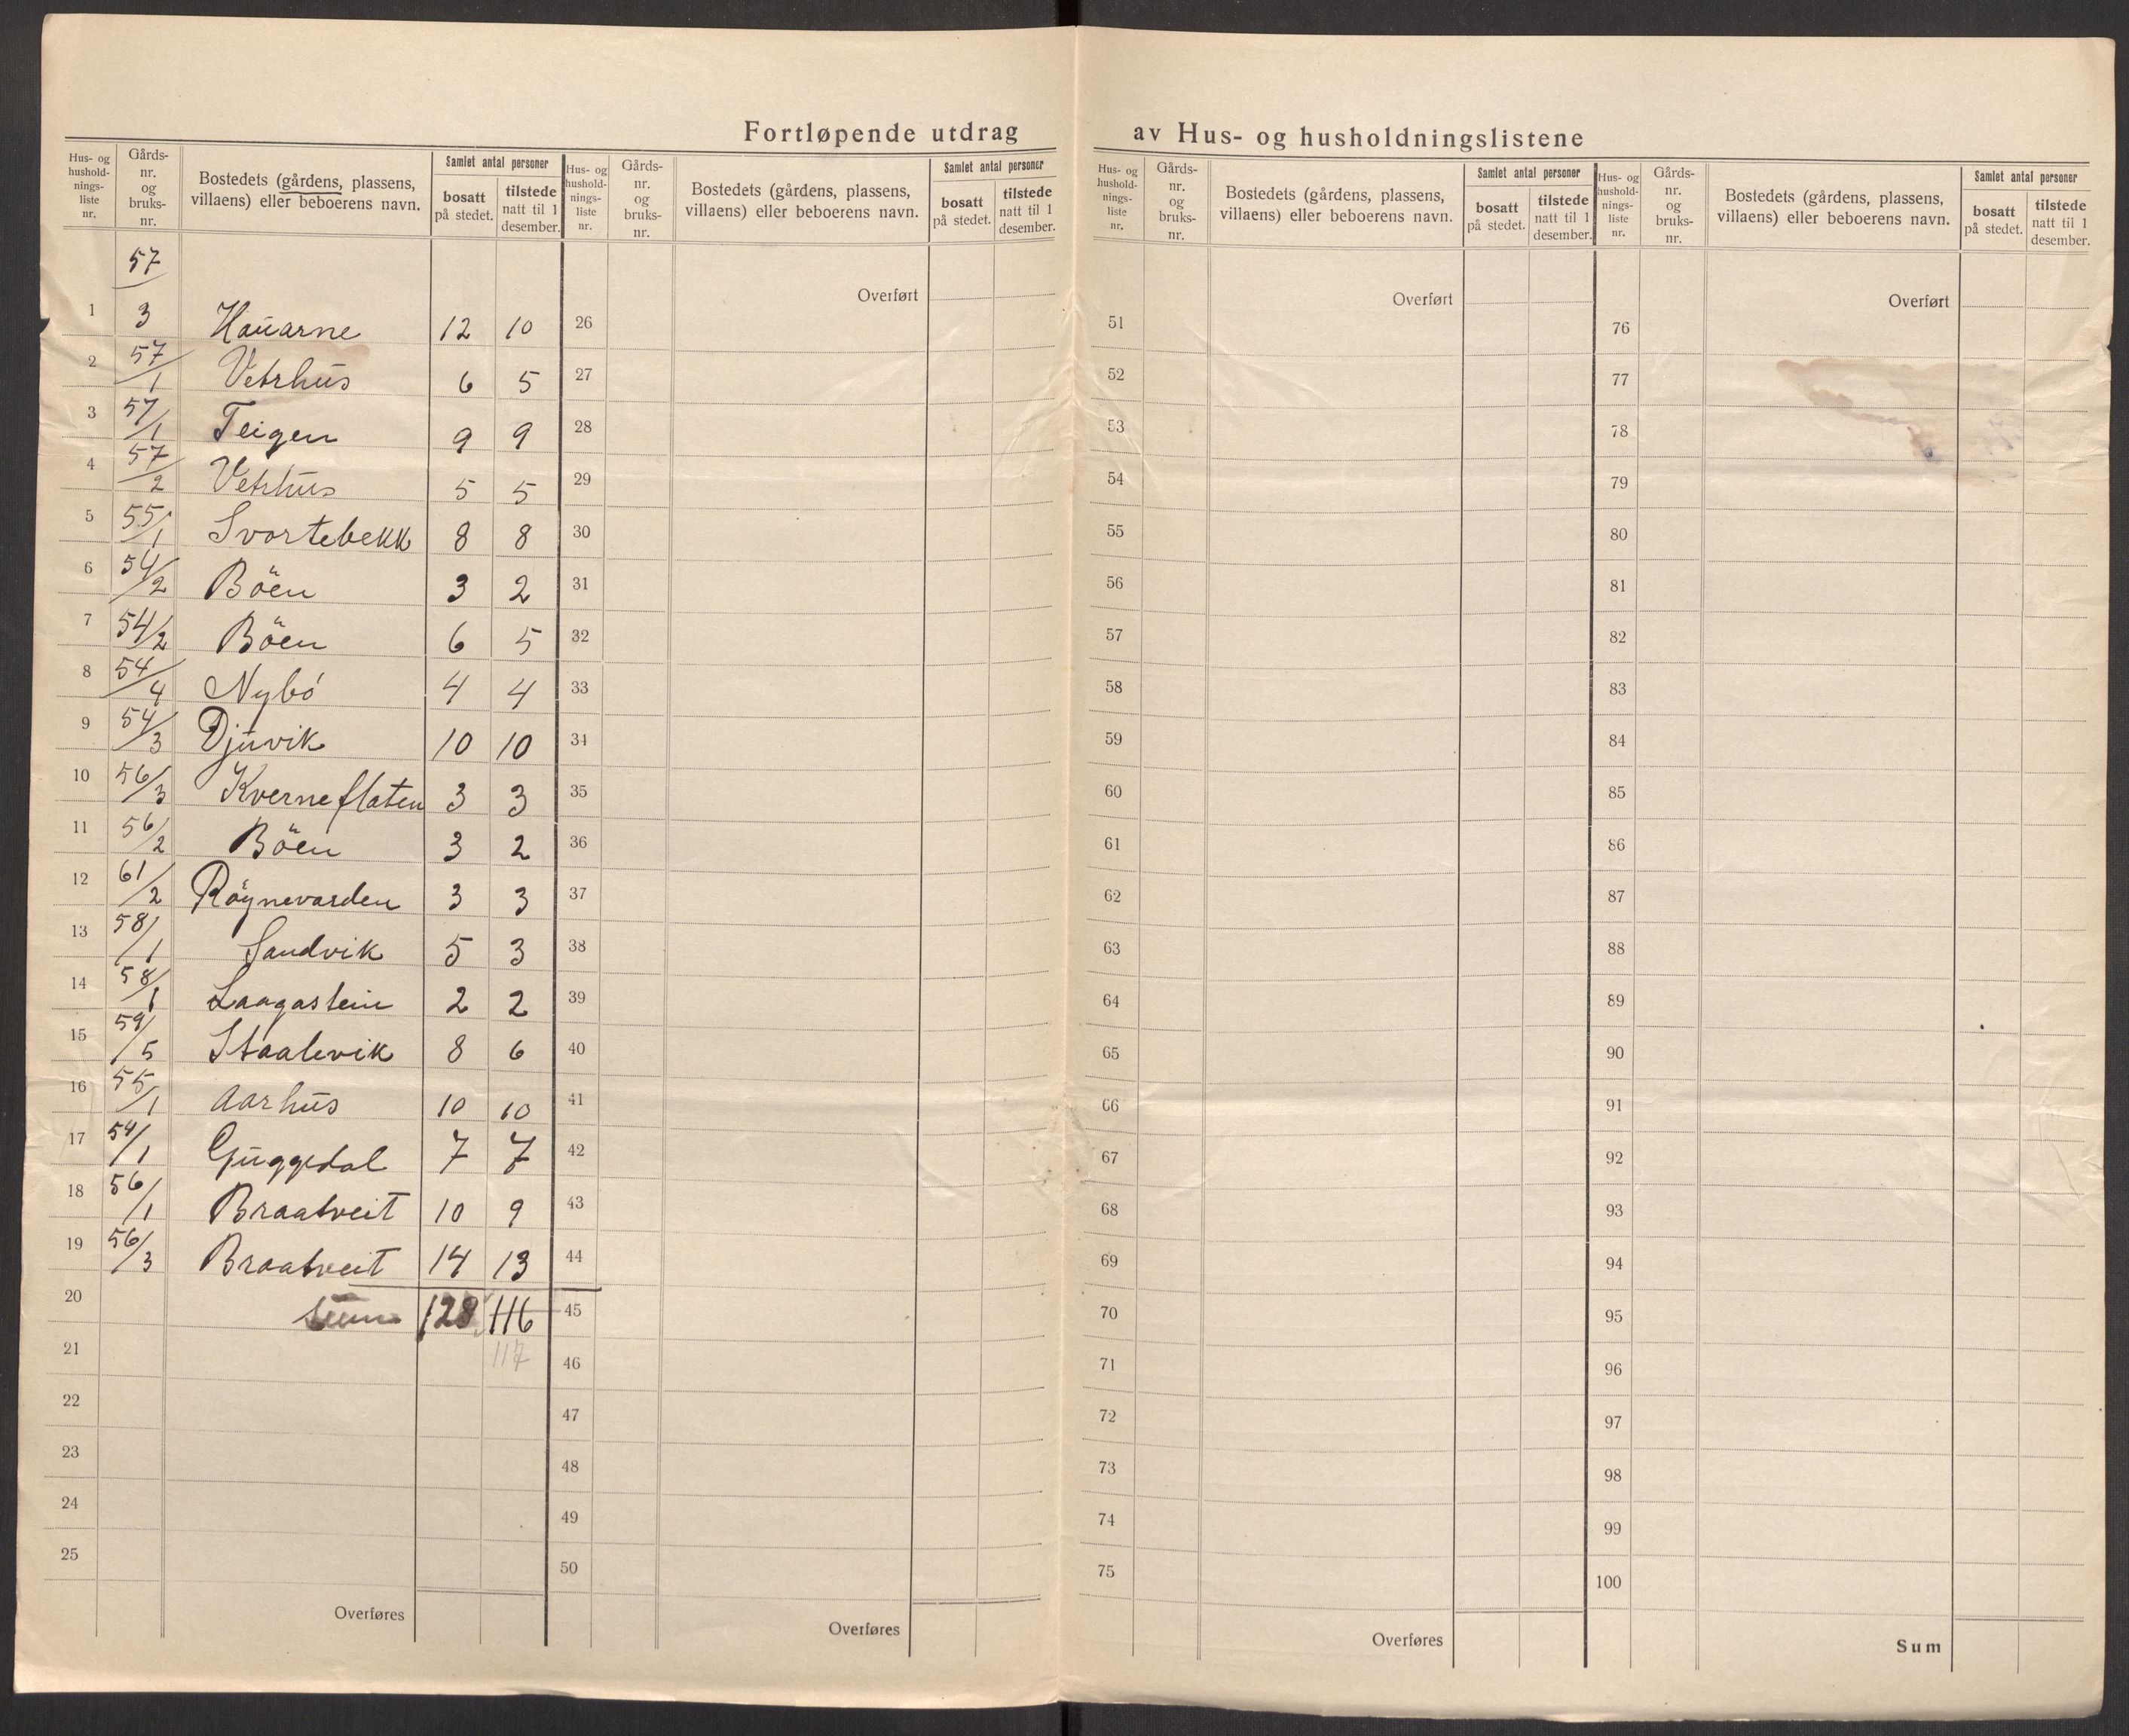 Fortløpende utdrag av Hus- og husholdningslistene
Hus- og hushold-nings-liste nr. Gårds-nr. og bruks-nr. Bostedets (gårdens, plassens, villaens) eller beboerens navn. Samlet antal personer bosatt på stedet. tilstede natt til 1 desember.
Hus- og hushold-nings-liste nr. Gårds-nr. og bruks-nr. Bostedets (gårdens, plassens, villaens) eller beboerens navn. Samlet antal personer bosatt på stedet. tilstede natt til 1 desember.
Hus- og hushold-nings-liste nr. Gårds-nr. og bruks-nr. Bostedets (gårdens, plassens, villaens) eller beboerens navn. Samlet antal personer bosatt på stedet. tilstede natt til 1 desember.
Hus- og hushold-nings-liste nr. Gårds-nr. og bruks-nr. Bostedets (gårdens, plassens, villaens) eller beboerens navn. Samlet antal personer bosatt på stedet. tilstede natt til 1 desember.
Overført Overført Overført
1 57/3 Hauarne 12 10 26 51 76
2 57/1 Vetrhus 6 5 27 52 77
3 57/1 Teigen 9 9 28 53 78
4 57/2 Vetrhus 5 5 29 54 79
5 55/1 Svortebekk 8 8 30 55 80
6 54/2 Böen 3 2 31 56 81
7 54/2 Böen 6 5 32 57 82
8 54/4 Nybó 4 4 33 58 83
9 54/3 Djuvik 10 10 34 59 84
10 56/3 Kverneflaten 3 3 35 60 85
11 56/2 Böen 3 2 36 61 86
12 61/2 Röynevarden 3 3 37 62 87
13 58/1 Sandvik 5 3 38 63 88
14 58/1 Laagastein 2 2 39 64 89
15 59/5 Staalevik 8 6 40 65 90
16 55/1 Aarhus 10 10 41 66 91
17 54/1 Guggedal 7 7 42 67 92
18 56/1 Braatveit 10 9 43 68 93
19 56/3 Braatveit 14 13 44 69 94
20 Sum 128 116 45 70 95
21 117 46 71 96
22 47 72 97
23 48 73 98
24 49 74 99
25 50 75 100
Overføres Overføres Overføres Sum